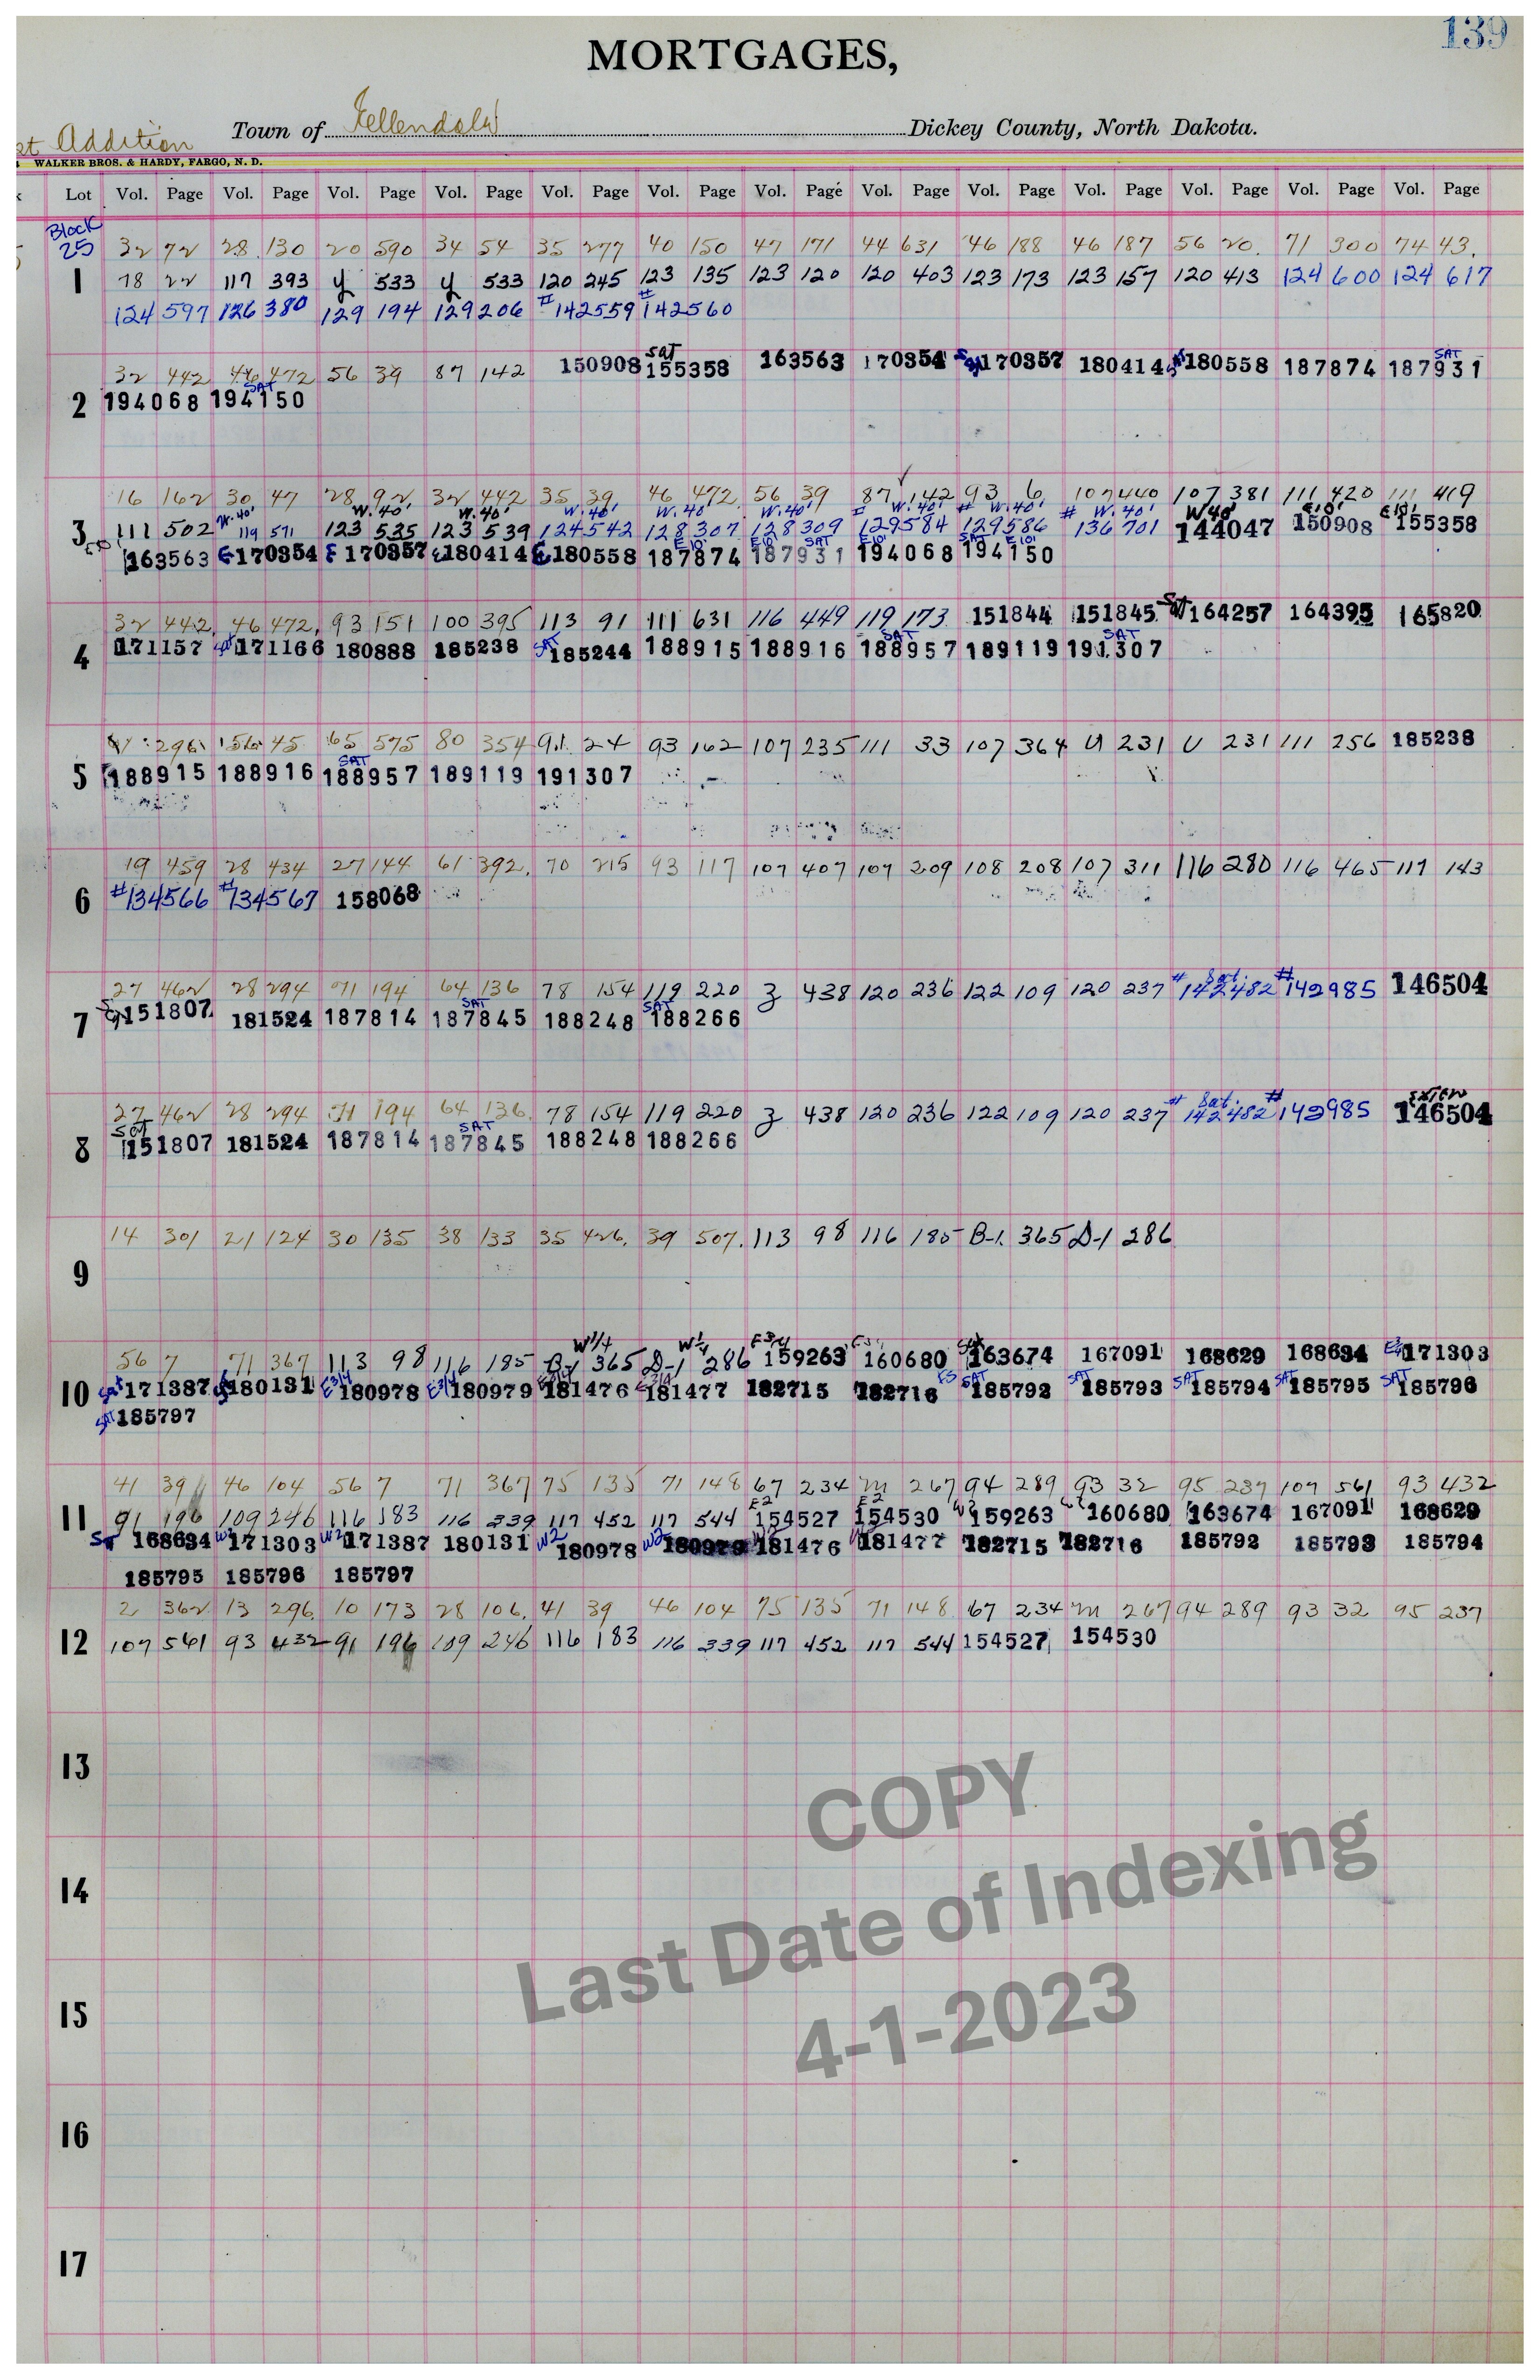 139
MORTGAGES,
Addition Town of Ellendale Dickey County, North Dakota.
WALKER BROS. & HARDY, FARGO, N. D.
Lot Vol. Page Vol. Page Vol. Page Vol. Page Vol. Page Vol. Page Vol. Page Vol. Page Vol. Page Vol. Page Vol. Page Vol. Page Vol. Page
Block
25 32 72 28 130 20 590 34 54 35 277 40 150 47 171 44 631 46 188 46 187 56 20. 71 300 74 43.
1 78 22 117 393 y 533 y 533 120 245 123 135 123 120 120 403 123 173 123 157 120 413 124 600 124 617
124 597 126 380 129 194 129 206 #142559 #142560
32 442 46 472 56 39 87 142 150908 Sat 155358 163563 170354 170357 180414 180558 187874 SAT 187931
2 194068 SAT 194150
16 162 30 47 28 92 32 442 35 39 46 472 56 39 87 142 93 6 107 440 107 381 111 420 111 419
W.40' W.40' W.40' W.40' W.40' W.40' W.40' W.40' W.40' W40' E10' E10'
3 111 502 119 571 123 535 123 539 124 542 128 307 128 309 # 129584 # 129586 # 136701 144047 150908 155358
163563 E 170354 E 170357 E 180414 E 180558 E10' 187874 E10' SAT 187931 E10' 194068 SAT E10' 194150
32 442. 46 472. 93 151 100 395 113 91 111 631 116 449 119 173 151844 151845 Sat 164257 164395 165820
4 171157 Sat 171166 180888 185238 SAT 185244 188915 188916 SAT 188957 189119 SAT 191307
296 45 65 575 80 354 91 24 93 162 107 235 111 33 107 364 U 231 U 231 111 256 185238
5 188915 188916 SAT 188957 189119 191307
19 459 28 434 27 144 61 392. 70 215 93 117 107 407 107 209 108 208 107 311 116 280 116 465 117 143
6 #134566 #134567 158068
27 462 28 294 71 194 64 136 78 154 119 220 z 438 120 236 122 109 120 237 # Sat. 142482 #142985 146504
7 151807 181524 187814 SAT 187845 188248 SAT 188266
27 462 28 294 71 194 64 136. 78 154 119 220 z 438 120 236 122 109 120 237 # Sat. 142482 #142985 146504
8 Sat 151807 181524 187814 SAT 187845 188248 188266
14 301 21 124 30 135 38 133 35 426. 39 507. 113 98 116 185 B-1. 365 D-1 286
9
W1/4 W1/4 E3/4
56 7 71 367 113 98 116 185 B-1 365 D-1 286 159263 160680 Sat 163674 167091 168629 168634 E3/4 171303
10 Sat 171387 180131 E3/4 180978 E3/4 180979 E3/4 181476 E3/4 181477 182715 182716 SAT 185792 SAT 185793 SAT 185794 SAT 185795 SAT 185796
SAT 185797
41 39 46 104 56 7 71 367 75 135 71 148 67 234 m 267 94 289 93 32 95 237 107 561 93 432
11 91 196 109 246 116 183 116 339 117 452 117 544 E2 154527 E2 154530 W2 159263 160680 163674 167091 168629
168634 W2 171303 W2 171387 180131 W2 180978 W2 180979 181476 181477 182715 182716 185792 185793 185794
185795 185796 185797
2 362 13 296. 10 173 28 106. 41 39 46 104 75 135 71 148. 67 234 m 267 94 289 93 32 95 237
12 107 561 93 432 91 196 109 246 116 183 116 339 117 452 117 544 154527 154530
13
14
15
16
17
COPY
Last Date of Indexing
4-1-2023